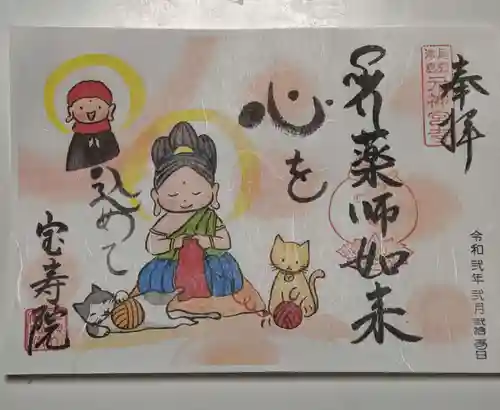 奉拝
令和弐年弐月弐拾
薬師如来
心を
込めて
宝寿院